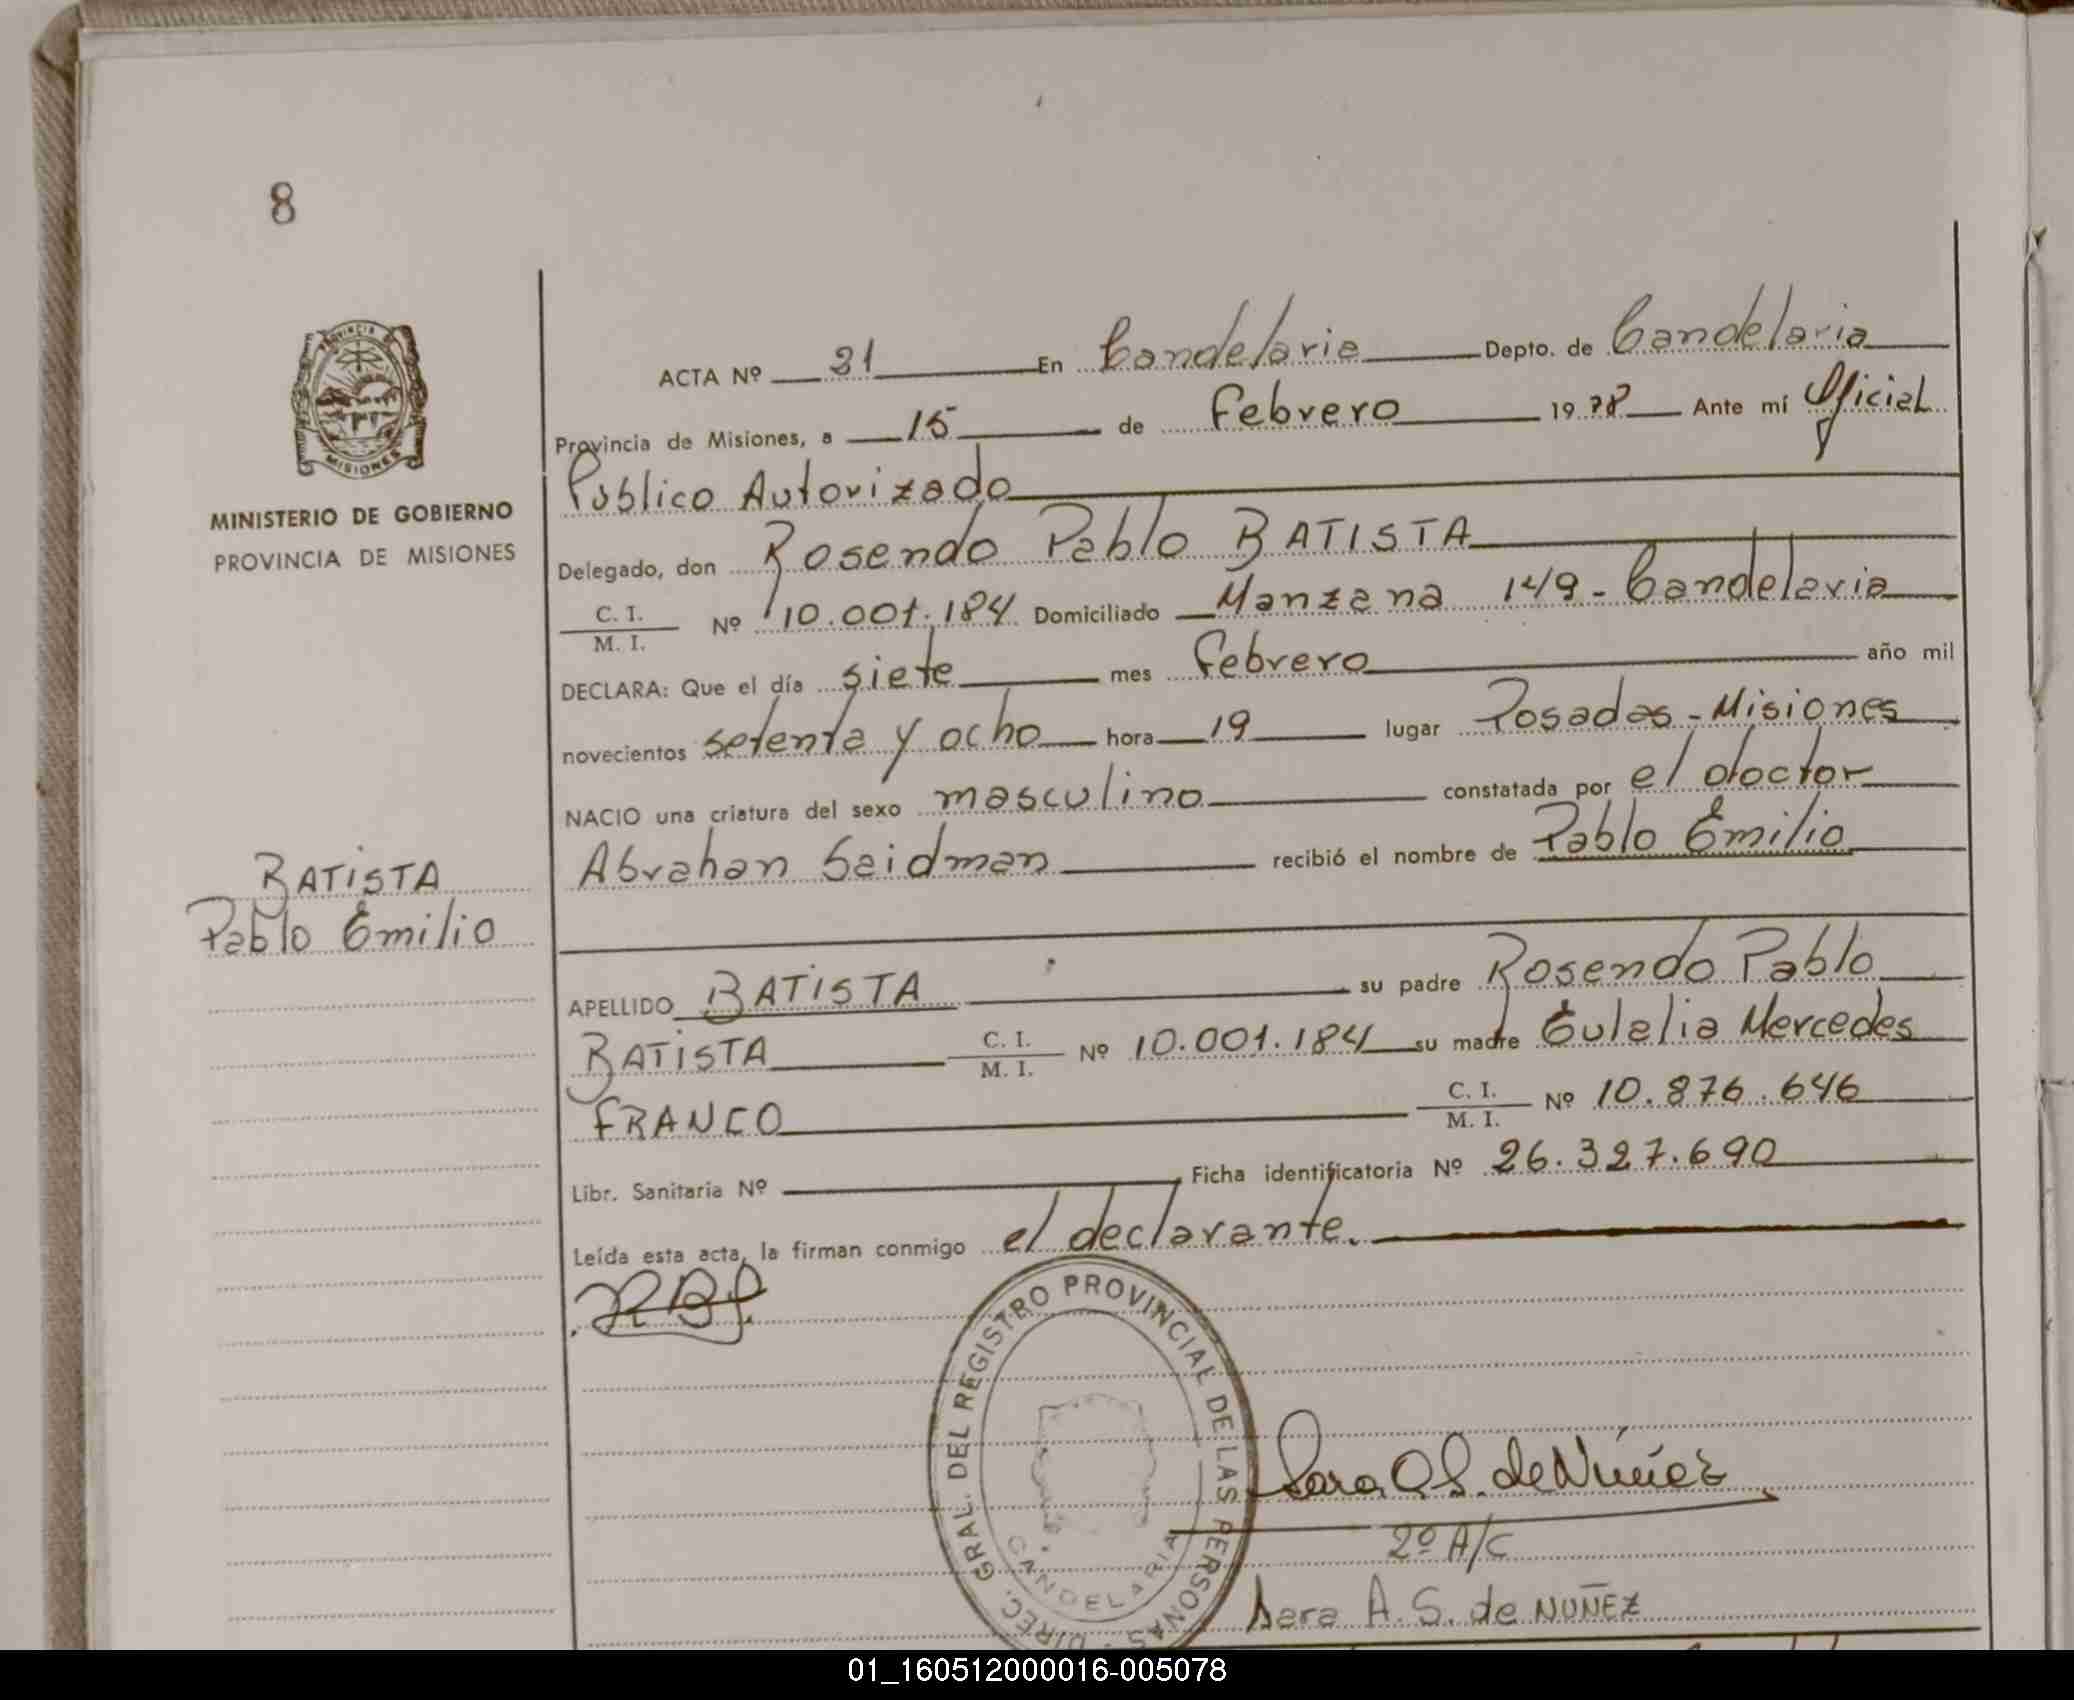 8
PROVINCIA
MISIONES
MINISTERIO DE GOBIERNO
PROVINCIA DE MISIONES
BATISTA
Pablo Emilio
ACTA Nº 31 En Candelaria Depto. de Candelaria
Provincia de Misiones, a 15 de Febrero 1978 Ante mí Oficial
Público Autorizado
Delegado, don Rosendo Pablo BATISTA
C. I. / M. I. Nº 10.001.184 Domiciliado Manzana 149 - Candelaria
DECLARA: Que el día siete mes Febrero año mil
novecientos setenta y ocho hora 19 lugar Posadas - Misiones
NACIO una criatura del sexo masculino constatada por el doctor
Abrahan Seidman recibió el nombre de Pablo Emilio
APELLIDO BATISTA su padre Rosendo Pablo
BATISTA C. I. / M. I. Nº 10.001.184 su madre Eulalia Mercedes
FRANCO C. I. / M. I. Nº 10.876.646
Libr. Sanitaria Nº Ficha identificatoria Nº 26.327.690
Leída esta acta, la firman conmigo el declarante.
DIREC. GRAL. DEL REGISTRO PROVINCIAL DE LAS PERSONAS
CANDELARIA
Sara A. S. de Nuñez
2º A/C
Sara A. S. de NUÑEZ
01_160512000016-005078